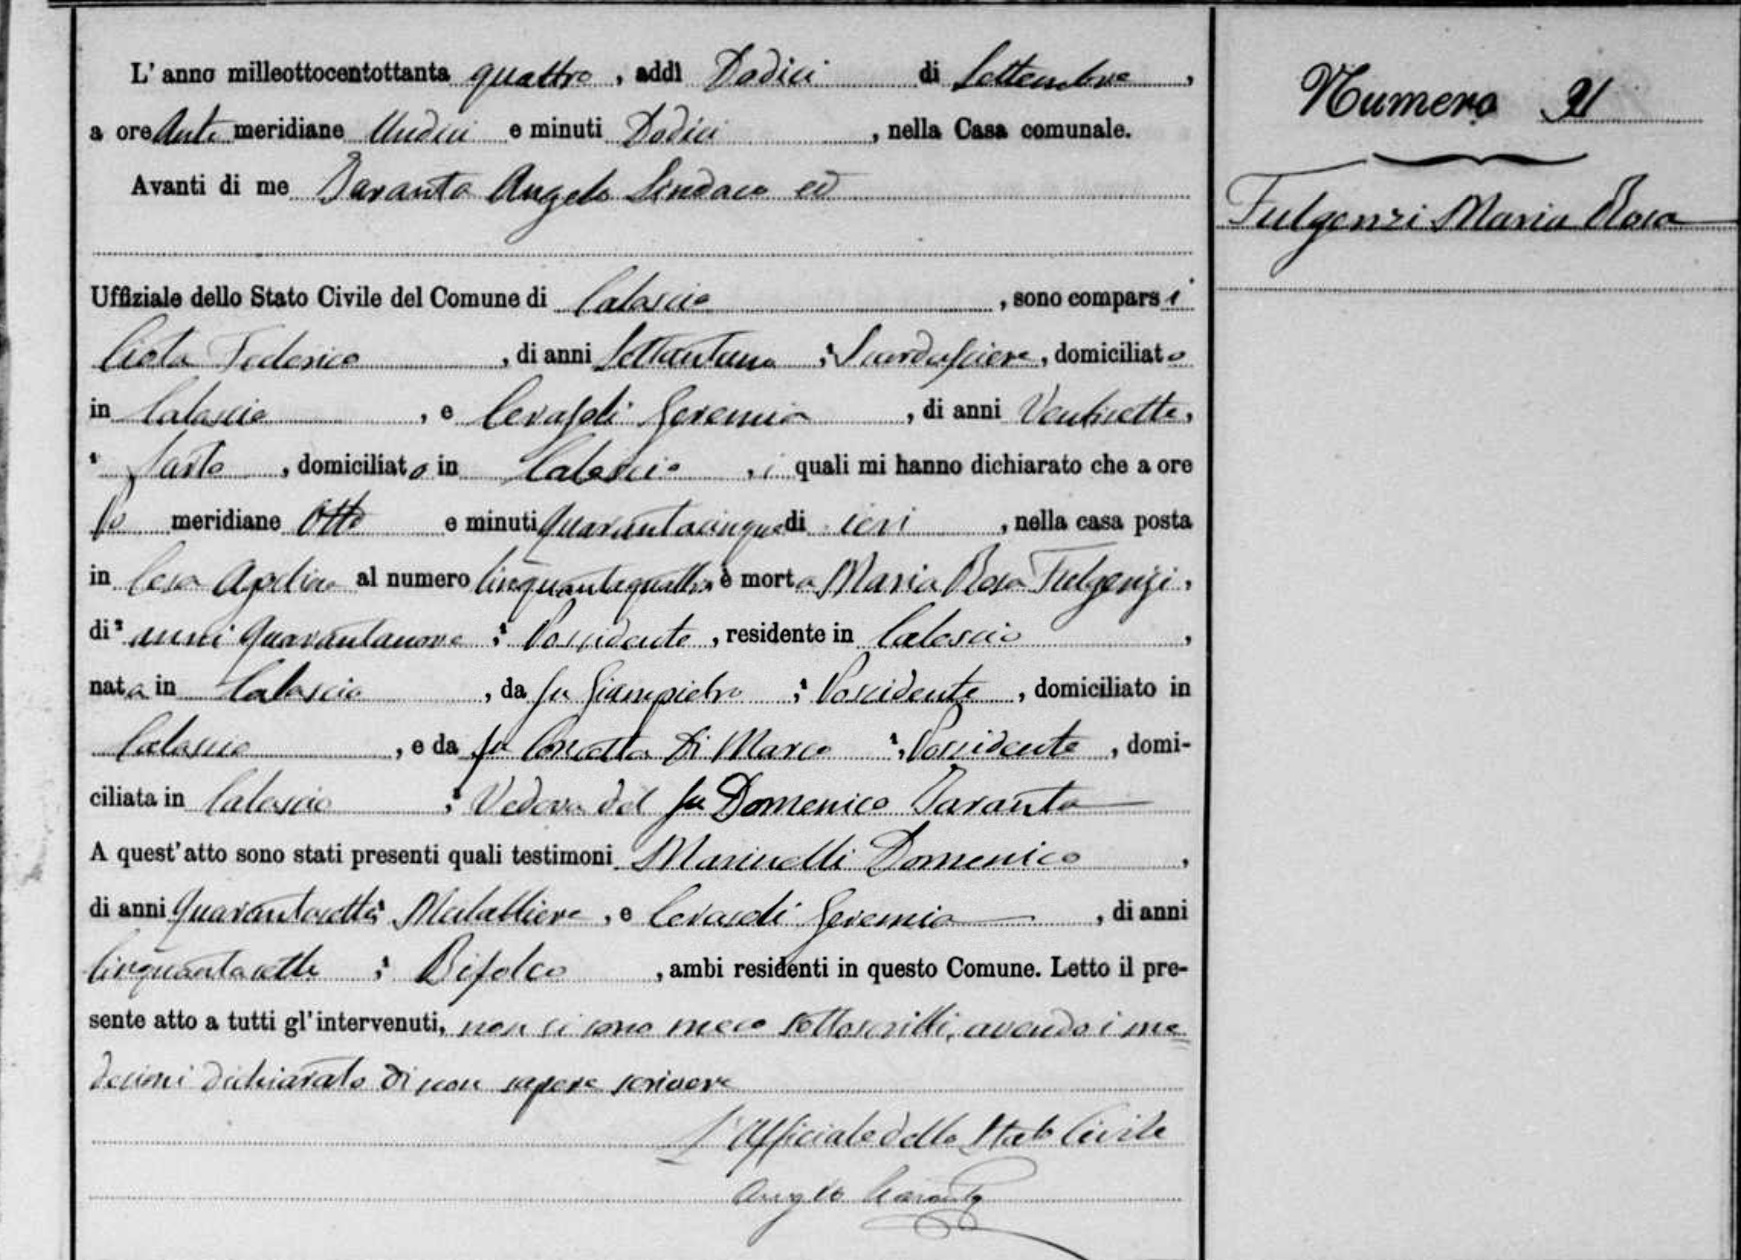 L' anno milleottocentottanta quattro, addì Dodici di Settembre,
a ore Anti meridiane Undici e minuti Dodici, nella Casa comunale.
Avanti di me Taranta Angelo Sindaco ed
Uffiziale dello Stato Civile del Comune di Calascio, sono comparsi
Federico, di anni Settantuno, domiciliato
in Calascio, e Geremia, di anni Ventisette,
Sarto, domiciliato in Calascio, i quali mi hanno dichiarato che a ore
Po meridiane Otto e minuti Quarantacinque di ieri, nella casa posta
in al numero Cinquantaquattro è morta Maria Rosa Fulgenzi,
di anni Quarantanove; Possidente, residente in Calascio,
nata in Calascio, da fu Giampietro; Possidente, domiciliato in
Calascio, e da fu Concetta Di Marco, Possidente, domi-
ciliata in Calascio; Vedova del fu Domenico Taranta
A quest'atto sono stati presenti quali testimoni Marinelli Domenico,
di anni Quarantasette; e Geremia, di anni
Cinquantasette; Bifolco, ambi residenti in questo Comune. Letto il pre-
sente atto a tutti gl'intervenuti, non si sono meco sottoscritti, avendo i me
desimi dichiarato di non sapere scrivere
L'Officiale dello Stato Civile
Angelo Taranta
Numero 21
Fulgenzi Maria Rosa